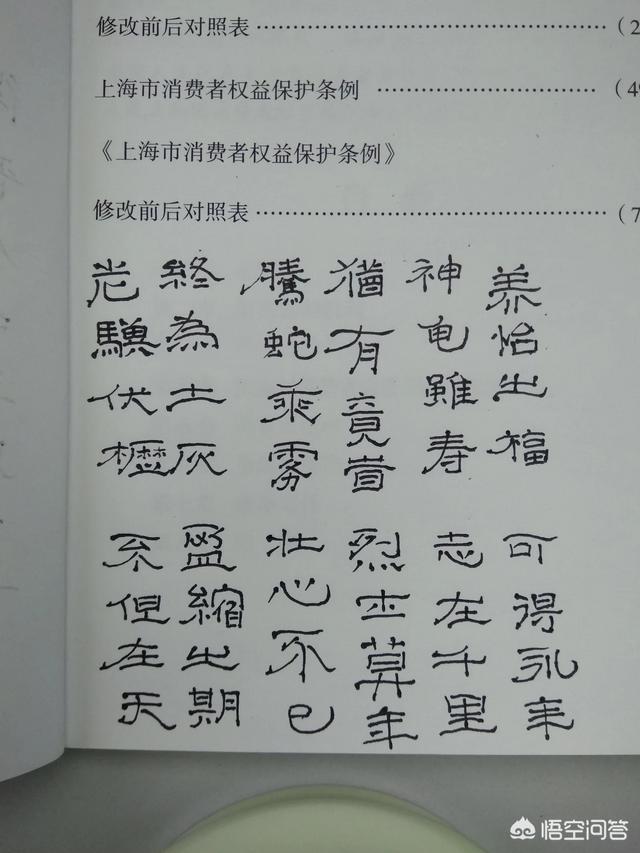 修改前后对照表 ……………………………（2
上海市消费者权益保护条例 ……………………（49
《上海市消费者权益保护条例》
修改前后对照表 ……………………………（7
神龟雖寿
猶有竟旹
騰蛇乘雾
終為土灰
老驥伏櫪
志在千里
烈士莫年
壮心不已
盈縮之期
不但在天
养怡之福
可得永年
悟空问答